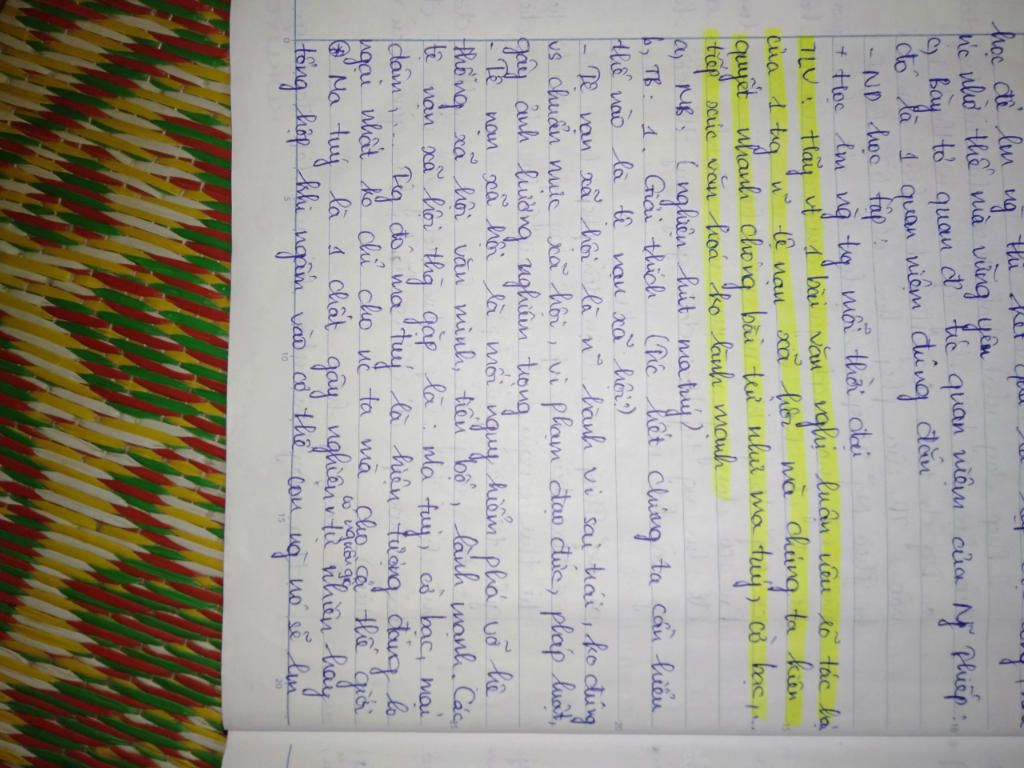 học để lm ng thì kết quả
ức nhờ thế mà vững yên
c, Bày tỏ quan đ' về quan niệm của Ng Thiếp:
đó là 1 quan niệm đúng đắn
- ND học tập:
+ Học lm ng tg mỗi thời đại
TLV: Hãy vt 1 bài văn nghị luận nêu rõ tác hại
của 1 tg n~ tệ nạn xã hội mà chúng ta kiên
quyết nhanh chóng bài trừ như ma tuý, cờ bạc,..
tiếp xúc văn hoá ko lành mạnh
a, MB: (nghiện hút ma tuý)
b, TB: 1. Giải thích (Trc hết chúng ta cần hiểu
thế nào là tệ nạn xã hội?)
- Tệ nạn xã hội là n~ hành vi sai trái, ko đúng
vs chuẩn mực xã hội, vi phạm đạo đức, pháp luật,
gây ảnh hưởng nghiêm trọng
- Tệ nạn xã hội là mối nguy hiểm phá vỡ hệ
thống xã hội văn minh, tiến bộ, lành mạnh. Các
tệ nạn xã hội thg gặp là: ma tuý, cờ bạc, mại
dâm,... Tg đó ma tuý là hiện tượng đáng lo
ngại nhất ko chỉ cho nc ta mà cho cả thế giới
* Ma tuý là 1 chất gây nghiện có nguồn gốc từ tự nhiên hay
tổng hợp khi ngấm vào cơ thể con ng nó sẽ lm